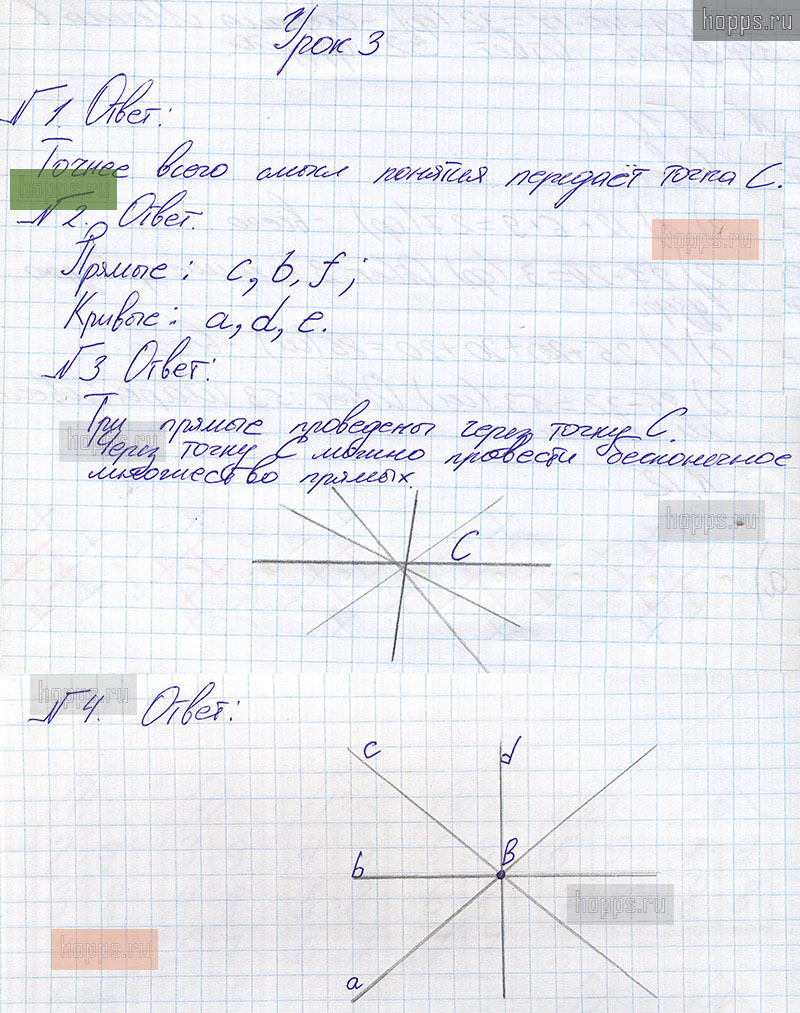 hopps.ru
Урок 3
№ 1. Ответ:
Точнее всего смысл понятия передаёт точка С.
hopps.ru
№ 2. Ответ.
hopps.ru
Прямые: c, b, f;
Кривые: a, d, e.
№ 3 Ответ:
Три прямые проведены через точку С.
hopps.ru
Через точку С можно провести бесконечное
множество прямых.
hopps.ru
C
hopps.ru
№ 4. Ответ:
c
d
B
b
hopps.ru
hopps.ru
a